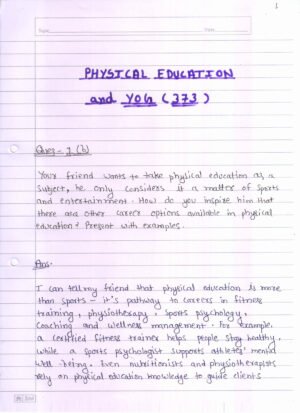 1
PHYSICAL EDUCATION
and YOG (373)
Ques- 1 (b)
Your friend wants to take physical education as a
subject, he only considers it a matter of sports
and entertainment. How do you inspire him that
there are other career options available in physical
education? Present with examples.
Ans.
I can tell my friend that physical education is more
than sports - it's pathway to careers in fitness
training, physiotherapy, sports psychology,
coaching and wellness management. For example,
a certified fitness trainer helps people stay healthy,
while a sports psychologist supports athletes' mental
well being. Even nutritionists and physiotherapists
rely on physical education knowledge to guide clients